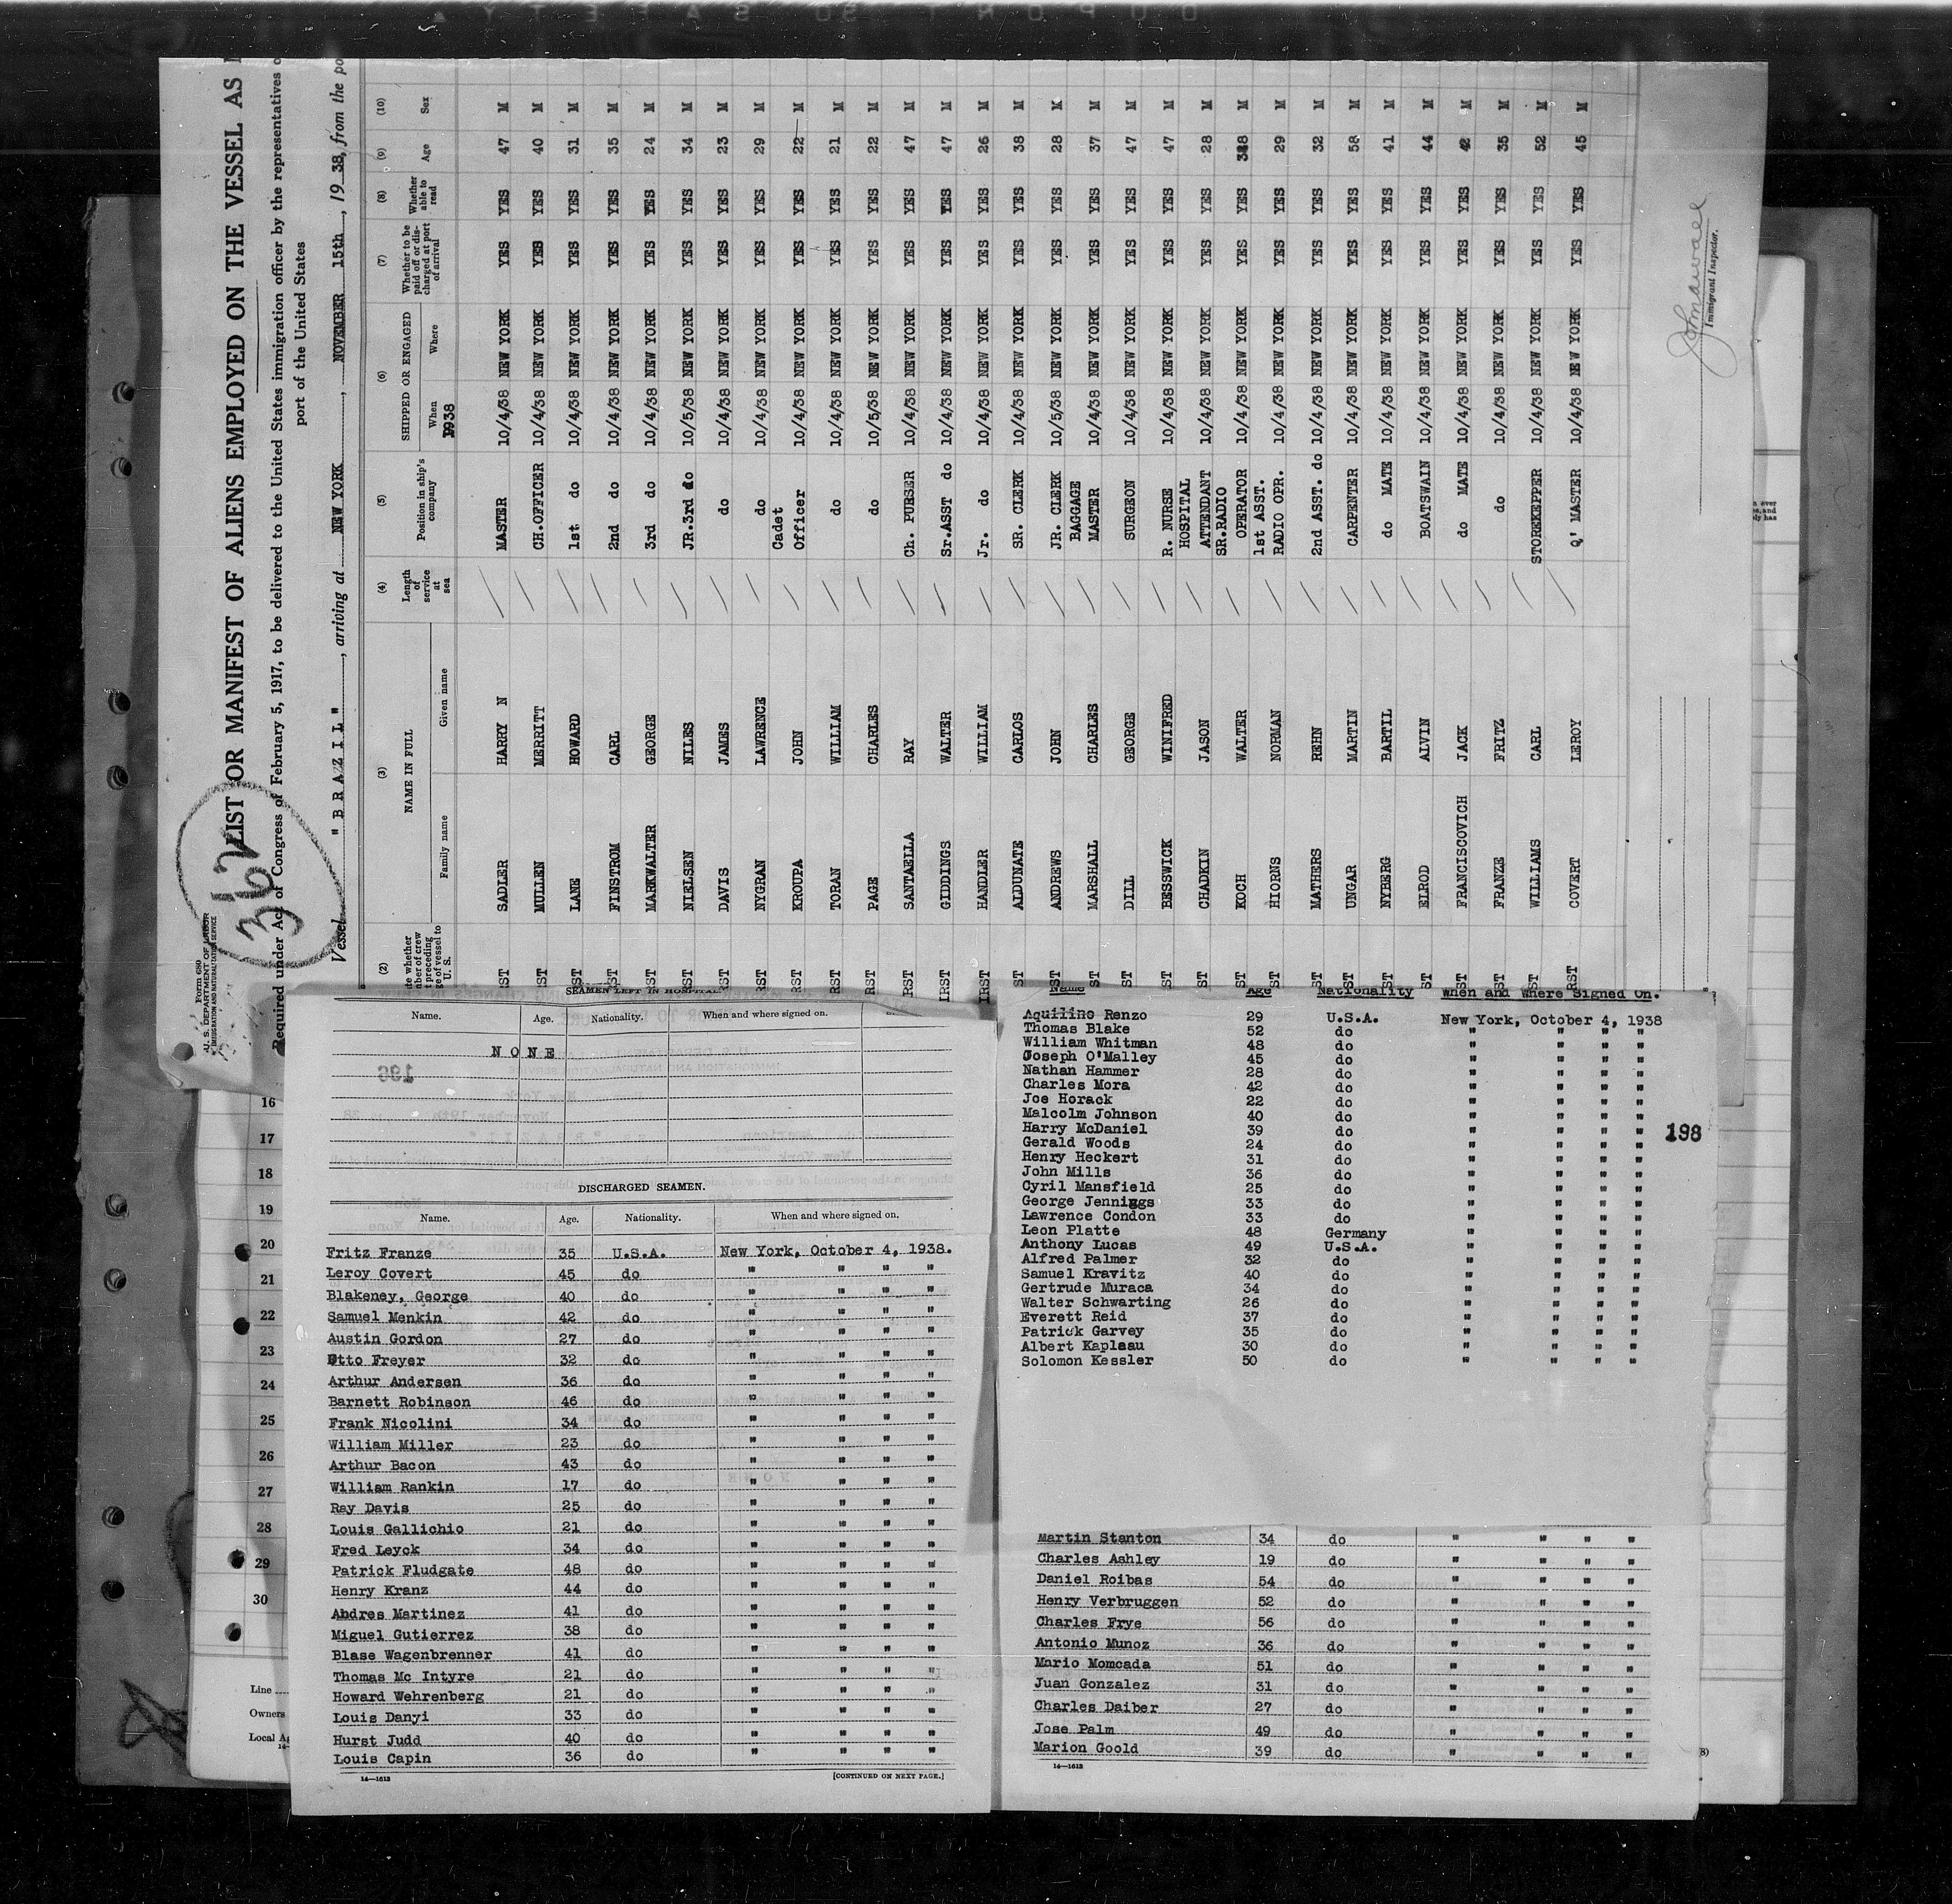 362
Form 680
U. S. DEPARTMENT OF LABOR
IMMIGRATION AND NATURALIZATION SERVICE
LIST OR MANIFEST OF ALIENS EMPLOYED ON THE VESSEL AS
Required under Act of Congress of February 5, 1917, to be delivered to the United States immigration officer by the representatives
port of the United States
Vessel "BRAZIL", arriving at NEW YORK, NOVEMBER 15th, 1938, from the po
(2) (3) (4) (5) (6) (7) (8) (9) (10)
NAME IN FULL Length of service at sea Position in ship's company SHIPPED OR ENGAGED Whether to be paid off or discharged at port of arrival Whether able to read Age Sex
Family name Given name When Where
1938
SADLER HARRY N MASTER 10/4/38 NEW YORK YES YES 47 M
MULLEN MERRITT CH.OFFICER 10/4/38 NEW YORK YES YES 40 M
LANE HOWARD 1st do 10/4/38 NEW YORK YES YES 31 M
FINSTROM CARL 2nd do 10/4/38 NEW YORK YES YES 35 M
MARKWALTER GEORGE 3rd do 10/4/38 NEW YORK YES YES 24 M
NIELSEN NILES JR.3rd do 10/5/38 NEW YORK YES YES 34 M
DAVIS JAMES do 10/4/38 NEW YORK YES YES 23 M
NYGRAN LAWRENCE do 10/4/38 NEW YORK YES YES 29 M
KROUPA JOHN Cadet Officer 10/4/38 NEW YORK YES YES 22 M
TORAN WILLIAM do 10/4/38 NEW YORK YES YES 21 M
PAGE CHARLES do 10/5/38 NEW YORK YES YES 22 M
SANTAELLA RAY Ch. PURSER 10/4/38 NEW YORK YES YES 47 M
GIDDINGS WALTER Sr.ASST do 10/4/38 NEW YORK YES YES 47 M
HANDLER WILLIAM Jr. do 10/4/38 NEW YORK YES YES 26 M
ALDUNATE CARLOS SR. CLERK 10/4/38 NEW YORK YES YES 38 M
ANDREWS JOHN JR. CLERK 10/5/38 NEW YORK YES YES 28 M
MARSHALL CHARLES BAGGAGE MASTER 10/4/38 NEW YORK YES YES 37 M
DILL GEORGE SURGEON 10/4/38 NEW YORK YES YES 47 M
BESSWICK WINIFRED R. NURSE 10/4/38 NEW YORK YES YES 47 M
CHADKIN JASON HOSPITAL ATTENDANT 10/4/38 NEW YORK YES YES 28 M
KOCH WALTER SR.RADIO OPERATOR 10/4/38 NEW YORK YES YES 38 M
HIORNS NORMAN 1st ASST. RADIO OPR. 10/4/38 NEW YORK YES YES 29 M
MATHERS REHN 2nd ASST. do 10/4/38 NEW YORK YES YES 32 M
UNGAR MARTIN CARPENTER 10/4/38 NEW YORK YES YES 58 M
NYBERG BARTIL do MATE 10/4/38 NEW YORK YES YES 41 M
ELROD ALVIN BOATSWAIN 10/4/38 NEW YORK YES YES 44 M
FRANCISCOVICH JACK do MATE 10/4/38 NEW YORK YES YES 42 M
FRANZE FRITZ do 10/4/38 NEW YORK YES YES 35 M
WILLIAMS CARL STOREKEEPPER 10/4/38 NEW YORK YES YES 52 M
COVERT LEROY Q' MASTER 10/4/38 NEW YORK YES YES 45 M
Immigrant Inspector.
SEAMEN LEFT IN HOSPITAL
Name. Age. Nationality. When and where signed on.
NONE
DISCHARGED SEAMEN.
Name. Age. Nationality. When and where signed on.
Fritz Franze 35 U.S.A. New York, October 4, 1938.
Leroy Covert 45 do " " " "
Blakeney, George 40 do " " " "
Samuel Menkin 42 do " " " "
Austin Gordon 27 do " " " "
Otto Freyer 32 do " " " "
Arthur Andersen 36 do " " " "
Barnett Robinson 46 do " " " "
Frank Nicolini 34 do " " " "
William Miller 23 do " " " "
Arthur Bacon 43 do " " " "
William Rankin 17 do " " " "
Ray Davis 25 do " " " "
Louis Gallichio 21 do " " " "
Fred Leyck 34 do " " " "
Patrick Fludgate 48 do " " " "
Henry Kranz 44 do " " " "
Andres Martinez 41 do " " " "
Miguel Gutierrez 38 do " " " "
Blase Wagenbrenner 41 do " " " "
Thomas Mc Intyre 21 do " " " "
Howard Wehrenberg 21 do " " " "
Louis Danyi 33 do " " " "
Hurst Judd 40 do " " " "
Louis Capin 36 do " " " "
14—1613 [CONTINUED ON NEXT PAGE.]
Name Age Nationality When and Where Signed On.
Aquilino Renzo 29 U.S.A. New York, October 4, 1938
Thomas Blake 52 do " " " "
William Whitman 48 do " " " "
Joseph O'Malley 45 do " " " "
Nathan Hammer 28 do " " " "
Charles Mora 42 do " " " "
Joe Horack 22 do " " " "
Malcolm Johnson 40 do " " " "
Harry McDaniel 39 do " " " "
Gerald Woods 24 do " " " "
Henry Heckert 31 do " " " "
John Mills 36 do " " " "
Cyril Mansfield 25 do " " " "
George Jenniggs 33 do " " " "
Lawrence Condon 33 do " " " "
Leon Platte 48 Germany " " " "
Anthony Lucas 49 U.S.A. " " " "
Alfred Palmer 32 do " " " "
Samuel Kravitz 40 do " " " "
Gertrude Muraca 34 do " " " "
Walter Schwarting 26 do " " " "
Everett Reid 37 do " " " "
Patrick Garvey 35 do " " " "
Albert Kaplsau 30 do " " " "
Solomon Kessler 50 do " " " "
198
Martin Stanton 34 do " " " "
Charles Ashley 19 do " " " "
Daniel Roibas 54 do " " " "
Henry Verbruggen 52 do " " " "
Charles Frye 56 do " " " "
Antonio Munoz 36 do " " " "
Mario Momcada 51 do " " " "
Juan Gonzalez 31 do " " " "
Charles Daiber 27 do " " " "
Jose Palm 49 do " " " "
Marion Goold 39 do " " " "
14—1613
16
17
18
19
20
21
22
23
24
25
26
27
28
29
30
Line
Owners
Local Ag